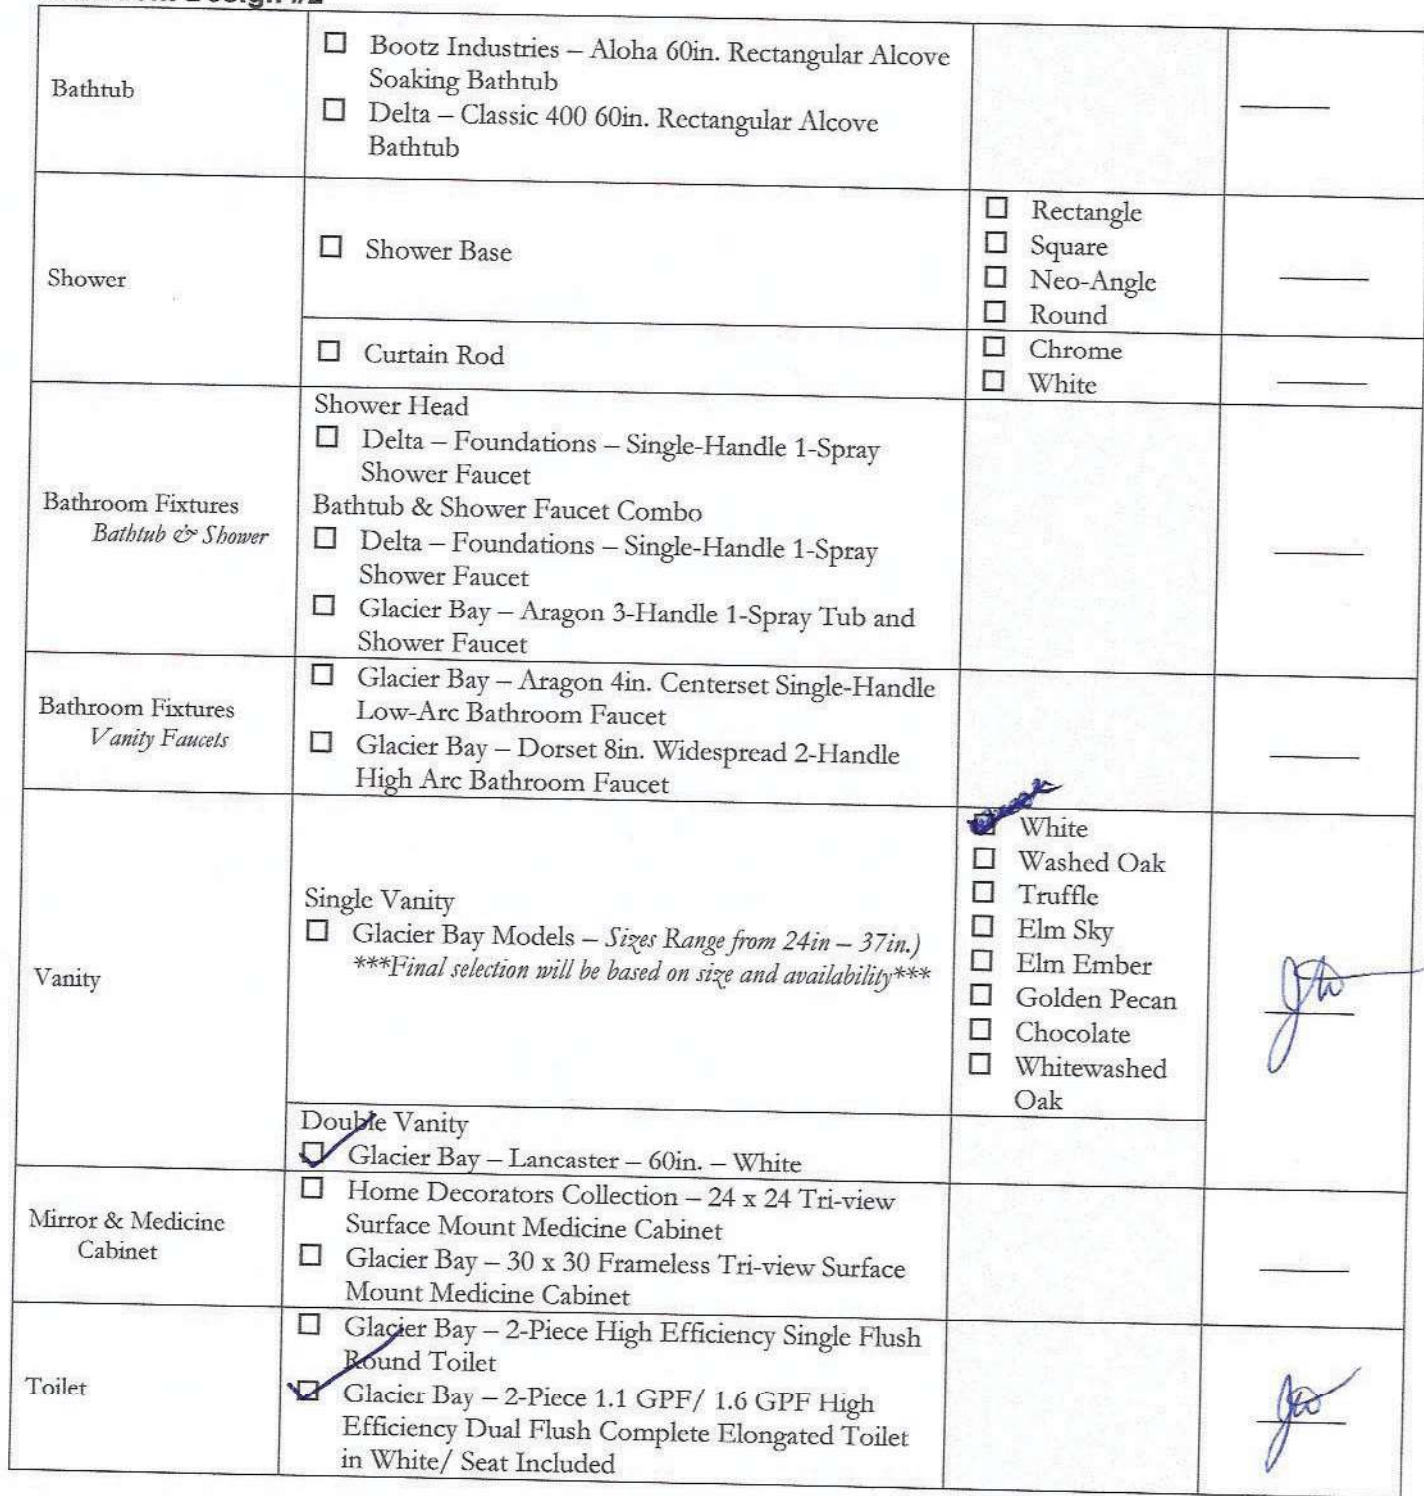 Design #2
Bathtub
☐ Bootz Industries – Aloha 60in. Rectangular Alcove
Soaking Bathtub
☐ Delta – Classic 400 60in. Rectangular Alcove
Bathtub
Shower
☐ Shower Base
☐ Rectangle
☐ Square
☐ Neo-Angle
☐ Round
☐ Curtain Rod
☐ Chrome
☐ White
Bathroom Fixtures
Bathtub & Shower
Shower Head
☐ Delta – Foundations – Single-Handle 1-Spray
Shower Faucet
Bathtub & Shower Faucet Combo
☐ Delta – Foundations – Single-Handle 1-Spray
Shower Faucet
☐ Glacier Bay – Aragon 3-Handle 1-Spray Tub and
Shower Faucet
Bathroom Fixtures
Vanity Faucets
☐ Glacier Bay – Aragon 4in. Centerset Single-Handle
Low-Arc Bathroom Faucet
☐ Glacier Bay – Dorset 8in. Widespread 2-Handle
High Arc Bathroom Faucet
Vanity
Single Vanity
☐ Glacier Bay Models – Sizes Range from 24in – 37in.)
***Final selection will be based on size and availability***
☐ White
☐ Washed Oak
☐ Truffle
☐ Elm Sky
☐ Elm Ember
☐ Golden Pecan
☐ Chocolate
☐ Whitewashed
Oak
Double Vanity
☑ Glacier Bay – Lancaster – 60in. – White
Mirror & Medicine
Cabinet
☐ Home Decorators Collection – 24 x 24 Tri-view
Surface Mount Medicine Cabinet
☐ Glacier Bay – 30 x 30 Frameless Tri-view Surface
Mount Medicine Cabinet
Toilet
☐ Glacier Bay – 2-Piece High Efficiency Single Flush
Round Toilet
☑ Glacier Bay – 2-Piece 1.1 GPF/ 1.6 GPF High
Efficiency Dual Flush Complete Elongated Toilet
in White/ Seat Included